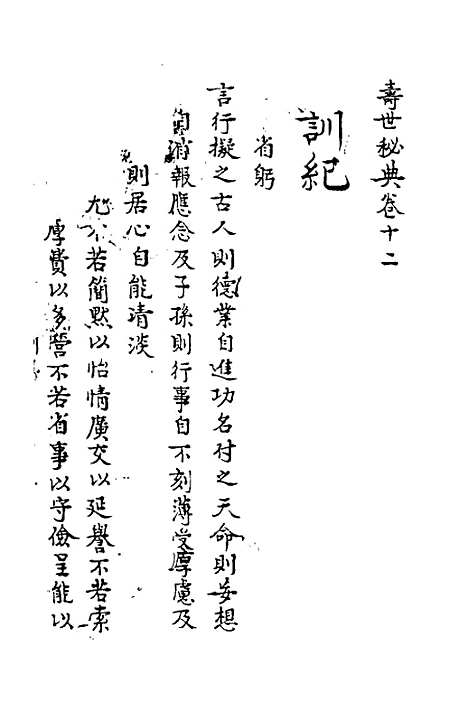 壽世秘典卷十二
訓紀
省躬
言行擬之古人則德業自進功名付之天命則妄想
自消報應念及子孫則行事自不刻薄受享慮及
則居心自能清淡
尤不若簡默以怡情廣交以延譽不若索
厚費以多營不若省事以守儉呈能以